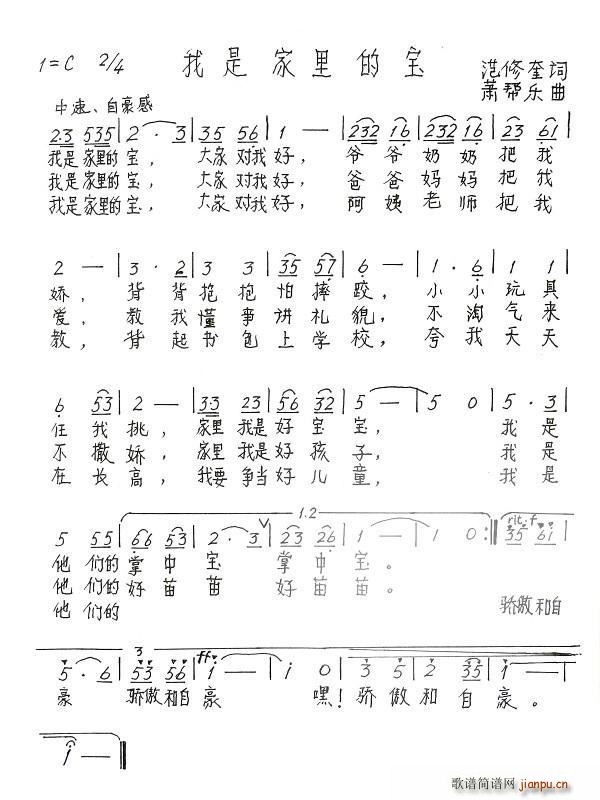 1=C 2/4 我是家里的宝 范修奎词
萧帮乐曲
中速、自豪感
2·3 535 | 2 · 3 | 35 56 | 1 — | 232 16 | 232 16 | 5 23 | 61 |
我是家里的宝，大家对我好，爷爷奶奶把我
我是家里的宝，大家对我好，爸爸妈妈把我
我是家里的宝，大家对我好，阿姨老师把我
2 — | 3 · 2 | 3 3 | 35 57 | 6 — | 1 · 6 | 1 2 |
娇，背背抱抱怕摔跤，小小玩具
爱，教我懂事讲礼貌，不淘气来
教，背起书包上学校，夸我天天
6 53 | 2 — | 33 23 | 56 32 | 5 — | 5 0 | 5 · 3 |
任我挑，家里我是好宝宝，我是
不撒娇，家里我是好孩子，我是
在长高，我要争当好儿童，我是
1.2 rit. f
5 55 | 66 53 | 2 · 3 | 23 26 | 1 — | 1 0 :| 35 61 |
他们的掌中宝 掌中宝。
他们的好苗苗 好苗苗。
他们的 骄傲和自
3 ff
5 · 6 | 53 56 | 1 — | i 0 | 3 5 | 2 35 | 1 — |
豪 骄傲和自豪 嘿！骄傲和自豪。
1 — ‖
歌谱简谱网
jianpu.cn